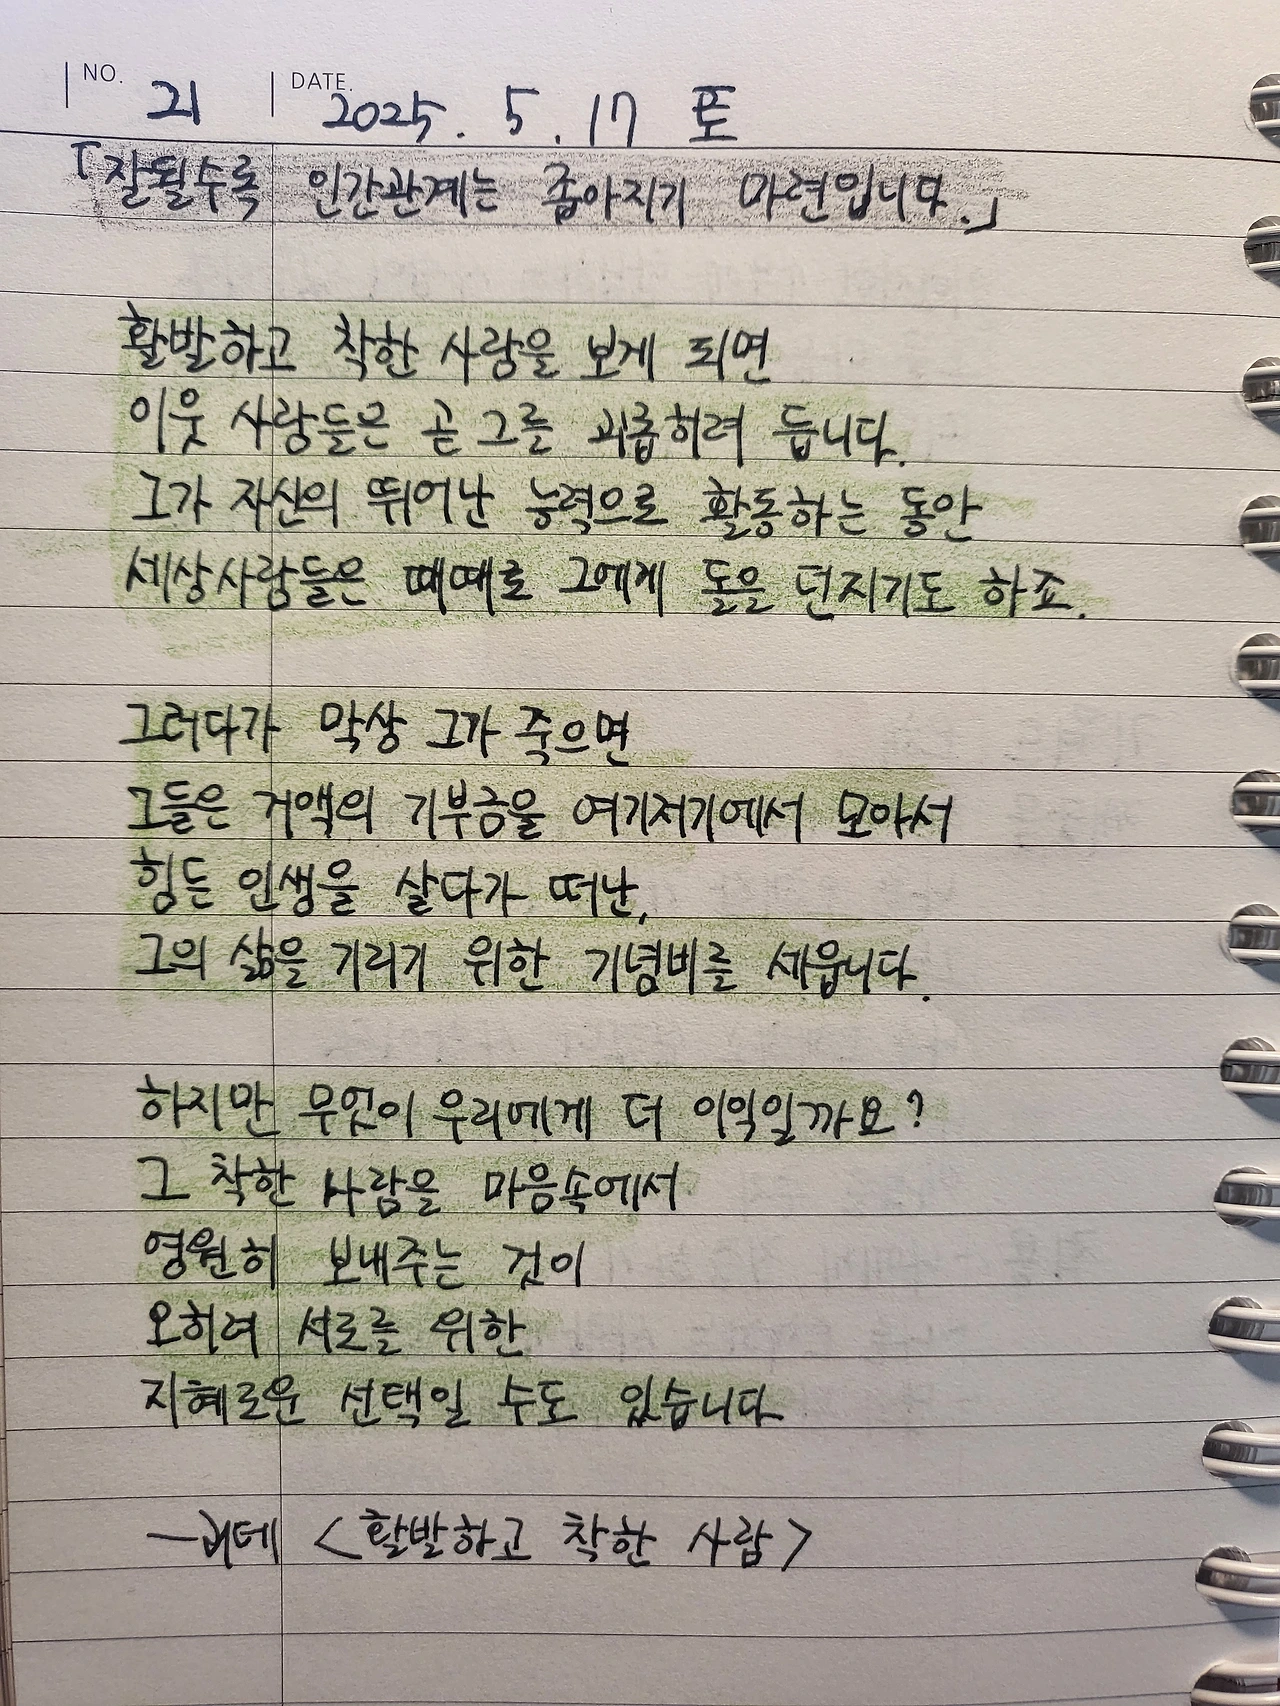 NO. 21 DATE. 2025. 5. 17 토
「잘될수록 인간관계는 좁아지기 마련입니다.」
활발하고 착한 사람을 보게 되면
이웃 사람들은 곧 그를 괴롭히려 듭니다.
그가 자신의 뛰어난 능력으로 활동하는 동안
세상사람들은 때때로 그에게 돌을 던지기도 하죠.
그러다가 막상 그가 죽으면
그들은 거액의 기부금을 여기저기에서 모아서
힘든 인생을 살다가 떠난,
그의 삶을 기리기 위한 기념비를 세웁니다.
하지만 무엇이 우리에게 더 이익일까요?
그 착한 사람을 마음속에서
영원히 보내주는 것이
오히려 서로를 위한
지혜로운 선택일 수도 있습니다
—괴테 <활발하고 착한 사람>